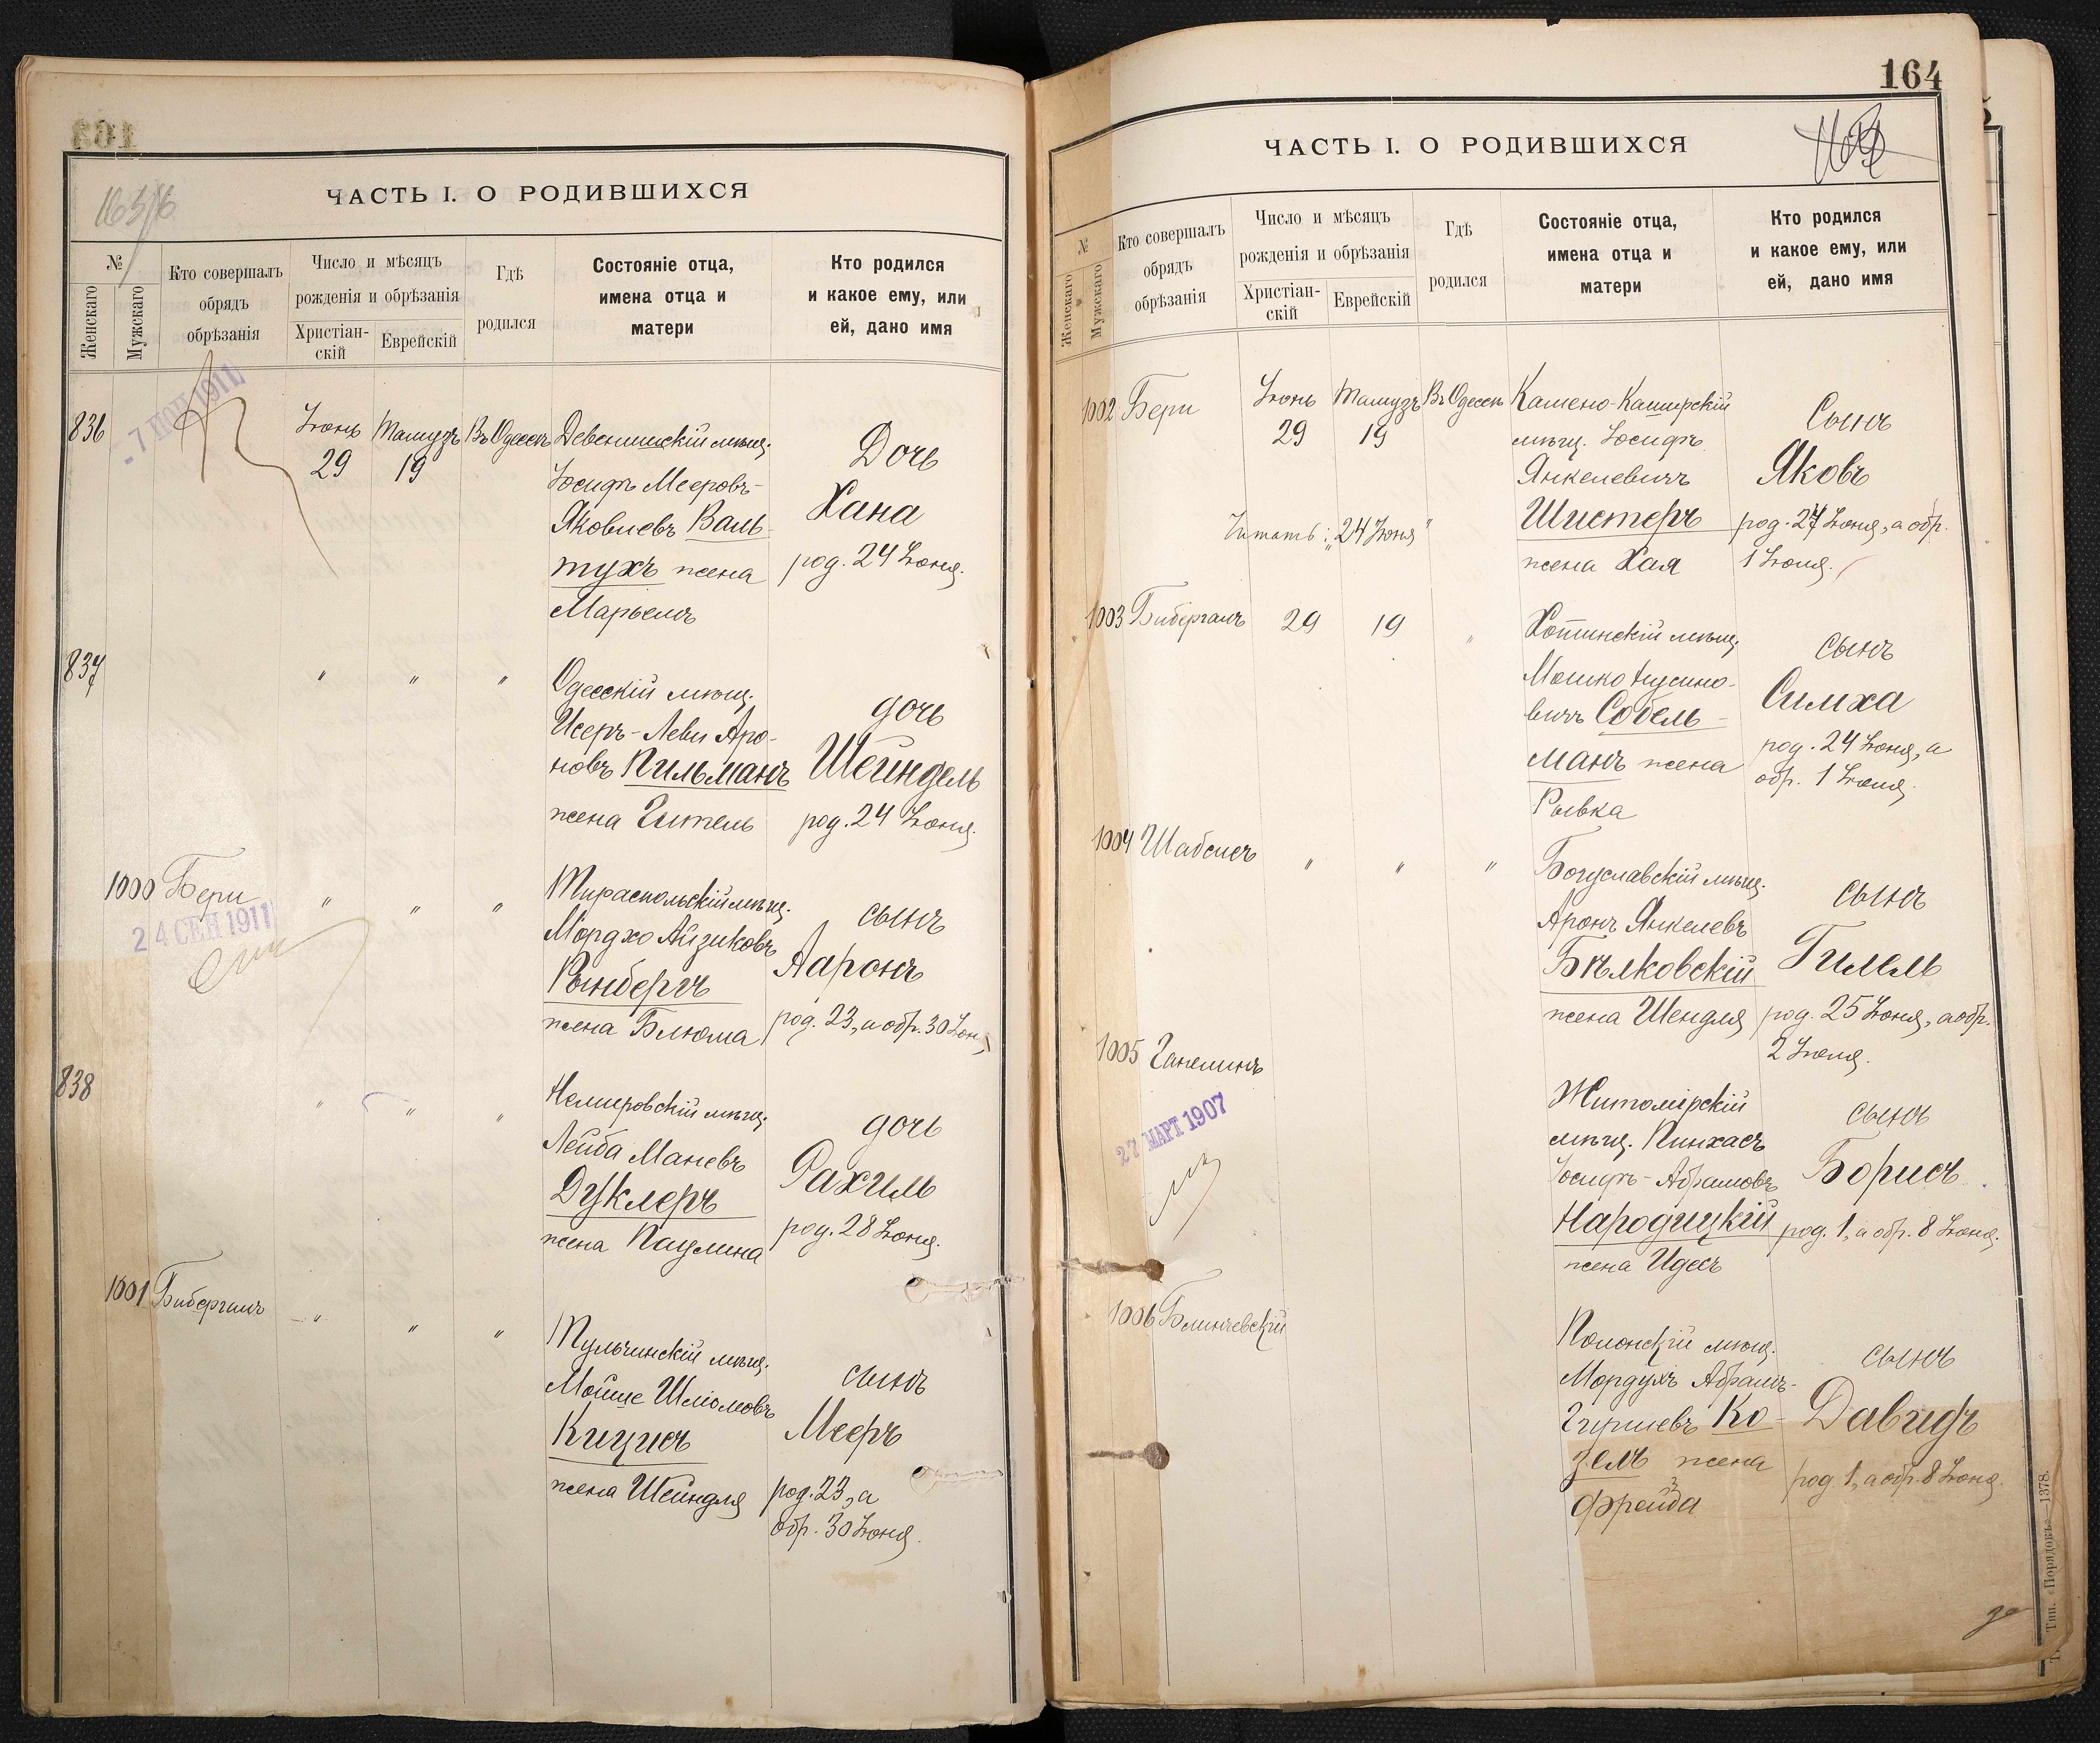 163/16
ЧАСТЬ I. О РОДИВШИХСЯ
№
Женскаго
Мужскаго
Кто совершалъ
обрядъ
обрѣзанія
Число и мѣсяцъ
рожденія и обрѣзанія
Христіан-
скій
Еврейскій
Гдѣ
родился
Состояніе отца,
имена отца и
матери
Кто родился
и какое ему, или
ей, дано имя
836
Іюнь
29
Тамузъ
19
Въ Одессѣ
Девенишскій мѣщ.
Іосифъ Мееровъ-
Яковлевъ Валь-
тухъ жена
Марьемъ
Дочь
Хана
род. 24 Іюня.
837
" " "
Одесскій мѣщ.
Исеръ-Леви Аро-
новъ Пильманъ
жена Гитель
дочь
Шейндель
род. 24 Іюня.
1000 Бери
24 СЕН 1911
" " "
Тираспольскій мѣщ.
Мордхо Айзиковъ
Рынбергъ
жена Блюма
сынъ
Ааронъ
род. 23, а обр. 30 Іюн
838
" " "
Немировскій мѣщ.
Лейба Маневъ
Дуклеръ
жена Паулина
дочь
Рахиль
род. 28 Іюня.
1001 Бибергалъ
" " "
Тульчинскій мѣщ.
Мойше Шліомовъ
Кицисъ
жена Шейндля
сынъ
Мееръ
род. 23, а
обр. 30 Іюня.
164
ЧАСТЬ I. О РОДИВШИХСЯ
№
Женскаго
Мужскаго
Кто совершалъ
обрядъ
обрѣзанія
Число и мѣсяцъ
рожденія и обрѣзанія
Христіан-
скій
Еврейскій
Гдѣ
родился
Состояніе отца,
имена отца и
матери
Кто родился
и какое ему, или
ей, дано имя
1002 Бери
Іюнь
29
Тамузъ
19
Въ Одессѣ
Читать: „24 Іюня"
Камено-Каширскій
мѣщ. Іосифъ
Янкелевичъ
Шистеръ
жена Хая
Сынъ
Яковъ
род. 24 Іюня, а обр.
1 Іюля.
1003 Бибергалъ
29 19 "
Хотинскій мѣщ.
Мошко Нусино-
вичъ Собель-
манъ жена
Рывка
сынъ
Симха
род. 24 Іюня, а
обр. 1 Іюля.
1004 Шабсисъ
" " "
Богуславскій мѣщ.
Аронъ Янкелевъ
Бѣлковскій
жена Шендля
сынъ
Гилель
род. 25 Іюня, а обр.
2 Іюля.
1005 Ганелинъ
27 МАРТ 1907
Житомірскій
мѣщ. Пинхасъ
Іосифъ-Абрамовъ
Народицкій
жена Идесъ
сынъ
Борисъ
род. 1, а обр. 8 Іюня.
1006 Блинчевскій
Полонскій мѣщ.
Мордухъ Абрамъ-
Гершевъ Ко-
зелъ жена
Фрейда
сынъ
Давидъ
род. 1, а обр. 8 Іюня.
Тип. «Порядокъ»—1378.